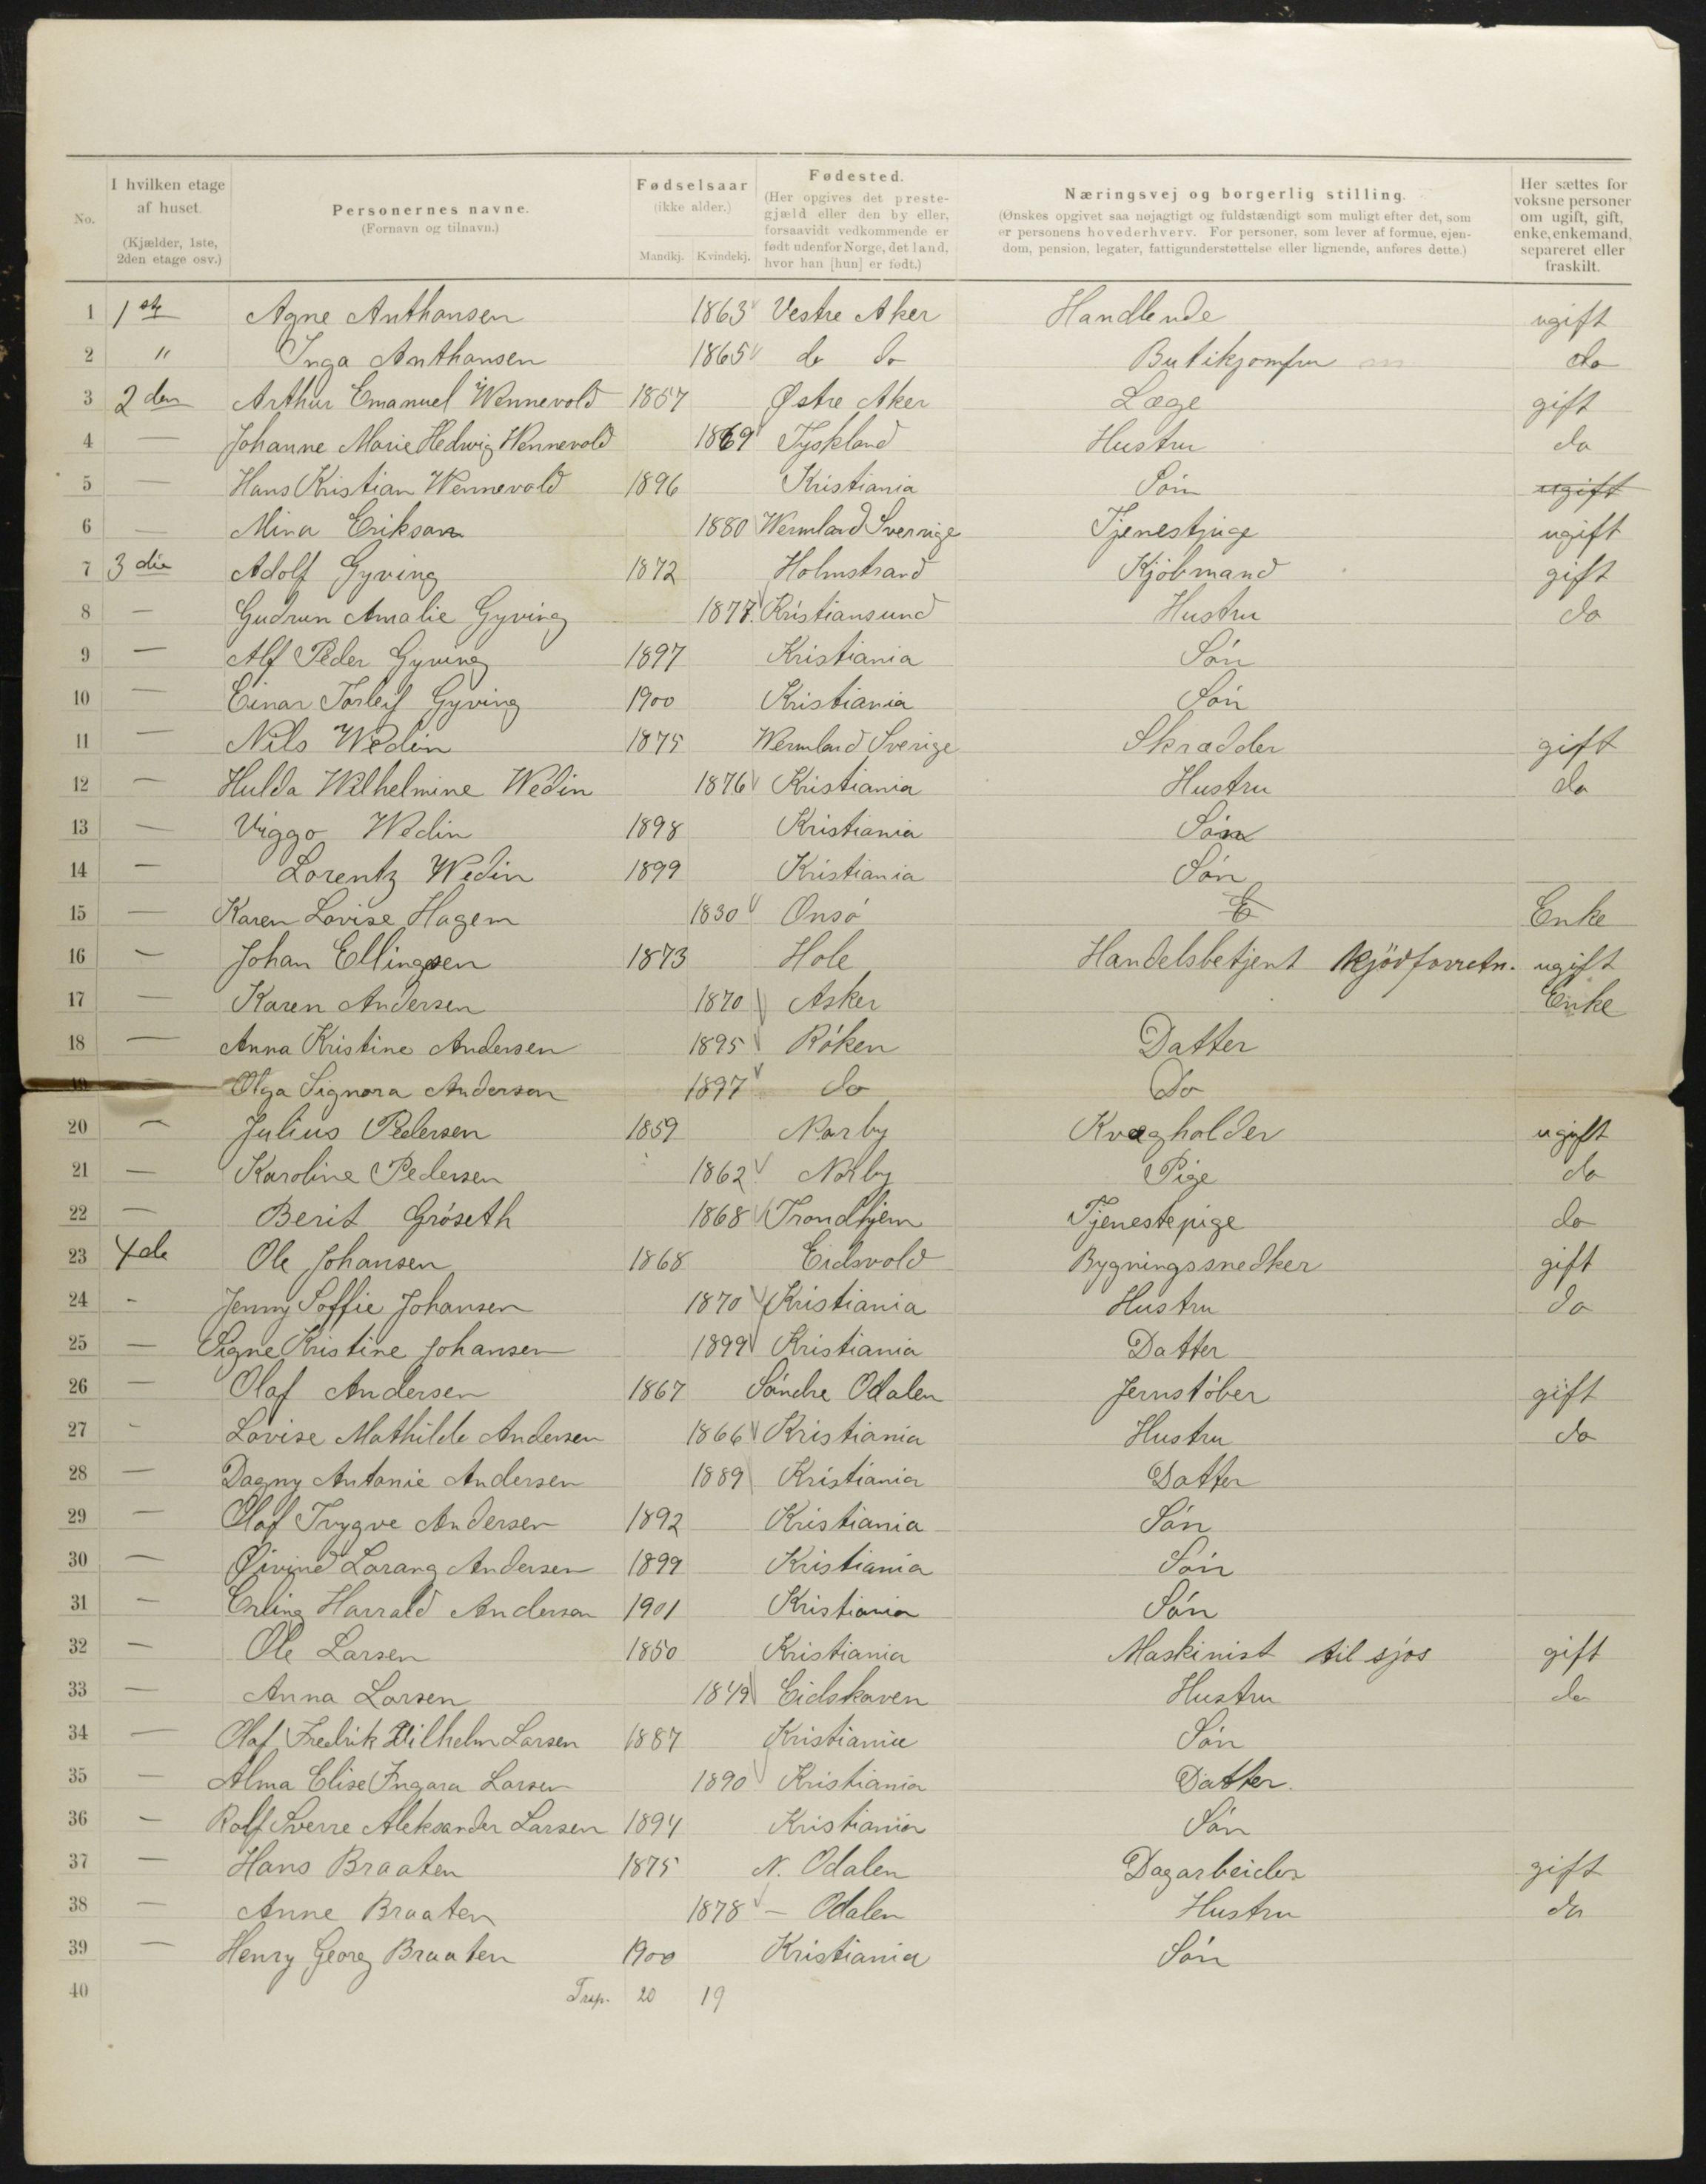 No.
I hvilken etage af huset.
(Kjælder, 1ste, 2den etage osv.)
Personernes navne.
(Fornavn og tilnavn.)
Fødselsaar
(ikke alder.)
Mandkj. Kvindekj.
Fødested.
(Her opgives det preste-
gjæld eller den by eller,
forsaavidt vedkommende er
født udenfor Norge, det land,
hvor han [hun] er født.)
Næringsvej og borgerlig stilling.
(Ønskes opgivet saa nøjagtigt og fuldstændigt som muligt efter det, som
er personens hovederhverv. For personer, som lever af formue, ejen-
dom, pension, legater, fattigunderstøttelse eller lignende, anføres dette.)
Her sættes for
voksne personer
om ugift, gift,
enke, enkemand,
separeret eller
fraskilt.
1 1ste Agne Anthonsen 1863 Vestre Aker Handlende ugift
2 " Inga Anthonsen 1865 do do Butikjomfru do
3 2den Arthur Emanuel Wennevold 1857 Østre Aker Læge gift
4 — Johanne Marie Hedwig Wennevold 1869 Tyskland Hustru do
5 — Hans Kristian Wennevold 1896 Kristiania Søn ugift
6 — Mina Erikson 1880 Wermland Sverrige Tjenestpige ugift
7 3die Adolf Gyving 1872 Holmstrand Kjøbmand gift
8 — Gudrun Amalie Gyving 1877 Kristiansund Hustru do
9 — Alf Peder Gyving 1897 Kristiania Søn
10 — Einar Torleif Gyving 1900 Kristiania Søn
11 — Nils Wedin 1875 Wermland Sverige Skrædder gift
12 — Hulda Wilhelmine Wedin 1876 Kristiania Hustru do
13 — Viggo Wedin 1898 Kristiania Søn
14 — Lorentz Wedin 1899 Kristiania Søn
15 — Karen Lovise Hagem 1830 Onsø E Enke
16 — Johan Ellingsen 1873 Hole Handelsbetjent Kjödforretn. ugift
17 — Karen Andersen 1870 Asker Enke
18 — Anna Kristine Andersen 1895 Røken Datter
19 — Olga Signora Andersen 1897 do Do
20 — Julius Pedersen 1859 Norby Kvægholder ugift
21 — Karoline Pedersen 1862 Norby Pige do
22 — Berit Grøseth 1868 Trondhjem Tjenestepige do
23 4de Ole Johansen 1868 Eidsvold Bygningssnedker gift
24 - Jenny Soffie Johansen 1870 Kristiania Hustru do
25 — Signe Kristine Johansen 1899 Kristiania Datter
26 — Olaf Andersen 1867 Søndre Odalen Jernstøber gift
27 - Lovise Mathilde Andersen 1866 Kristiania Hustru do
28 — Dagny Antonie Andersen 1889 Kristiania Datter
29 — Olaf Trygve Andersen 1892 Kristiania Søn
30 — Øivind Lorang Andersen 1899 Kristiania Søn
31 — Erling Harrald Andersen 1901 Kristiania Søn
32 — Ole Larsen 1850 Kristiania Maskinist til sjøs gift
33 — Anna Larsen 1849 Eidskoven Hustru do
34 — Olaf Fredrik Wilhelm Larsen 1887 Kristiania Søn
35 — Alma Elise Ingara Larsen 1890 Kristiania Datter.
36 — Rolf Sverre Aleksander Larsen 1894 Kristiania Søn
37 — Hans Braaten 1875 N. Odalen Dagarbeider gift
38 — Anne Braaten 1878 — Odalen Hustru do
39 — Henry Georg Braaten 1900 Kristiania Søn
40 Trsp. 20 19